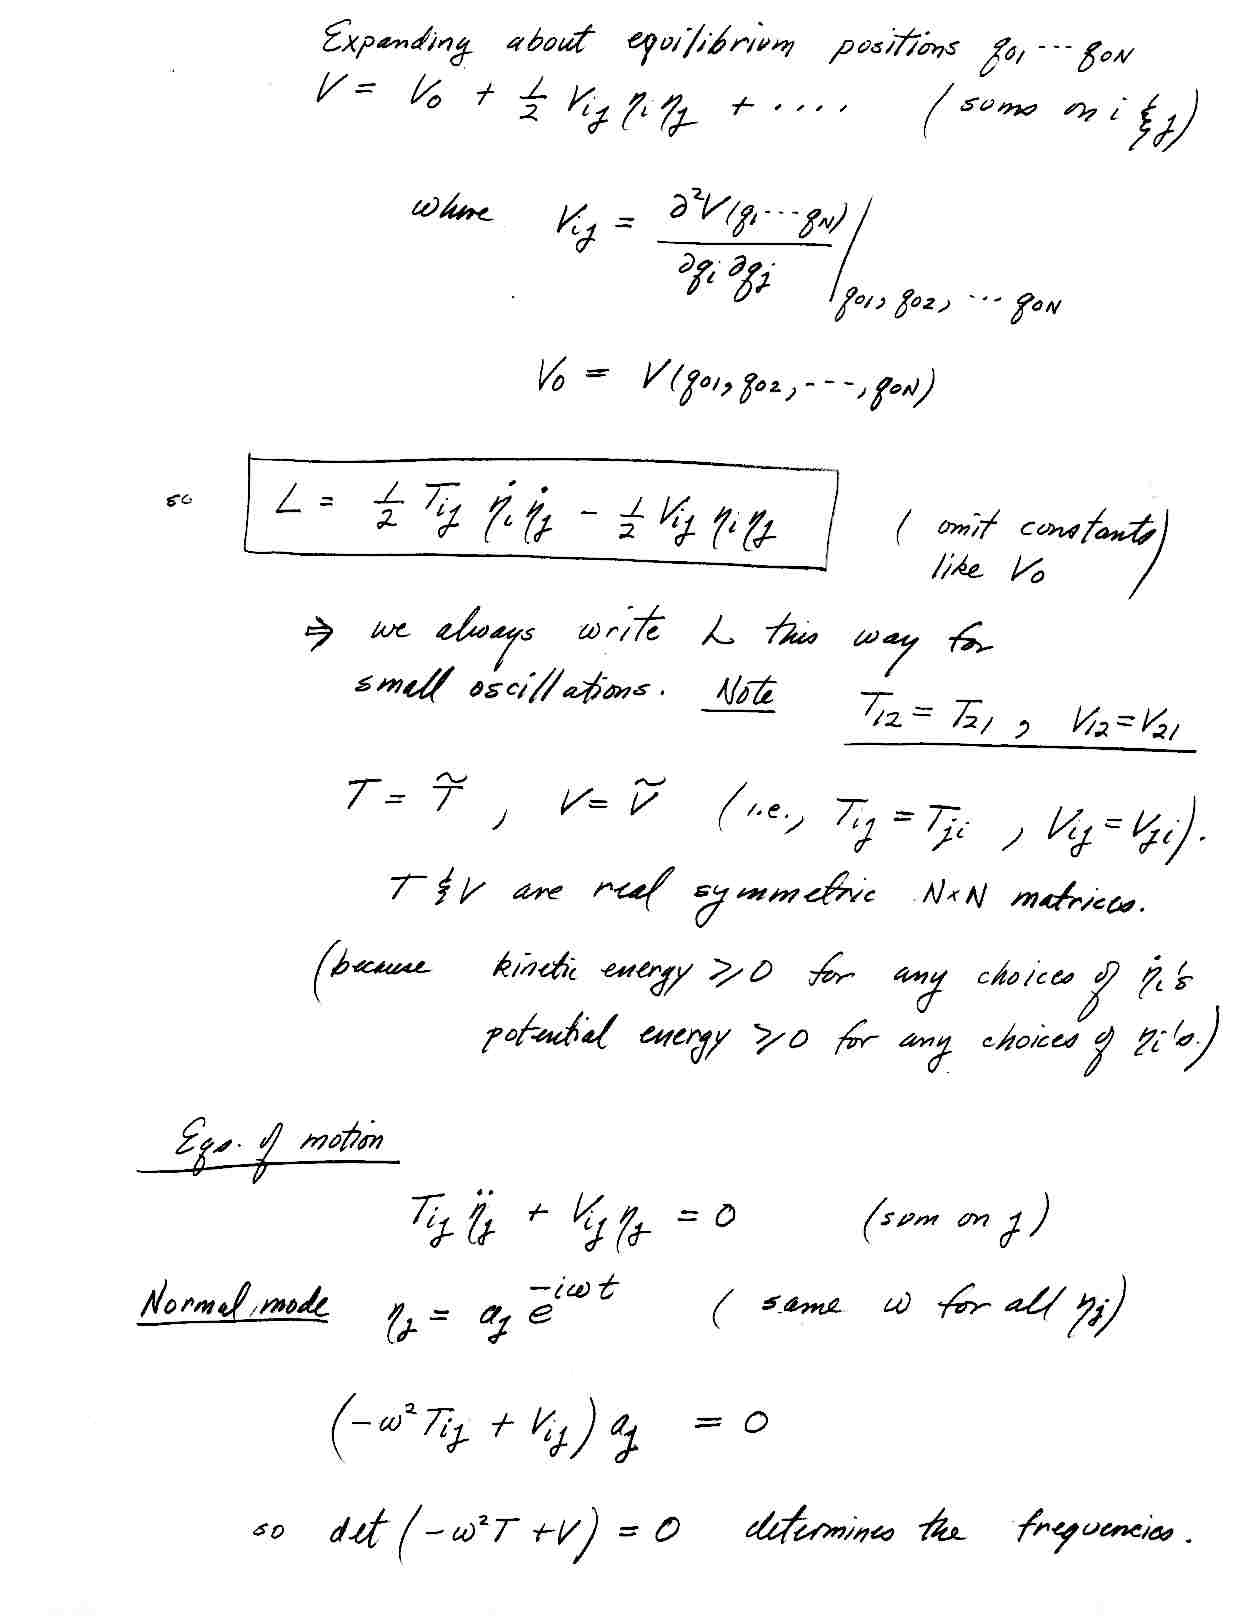 Expanding about equilibrium positions q₀₁ ··· q₀N
V = V₀ + ½ Vij ηi ηj + ···· (sums on i & j)
where Vij = ∂²V(q₁···qN) / ∂qi ∂qj | q₀₁, q₀₂, ··· q₀N
V₀ = V(q₀₁, q₀₂, ---, q₀N)
so L = ½ Tij η̇i η̇j - ½ Vij ηi ηj (omit constants
like V₀)
⇒ we always write L this way for
small oscillations. Note T₁₂ = T₂₁ , V₁₂ = V₂₁
T = T̃ , V = Ṽ (i.e., Tij = Tji , Vij = Vji).
T & V are real symmetric N×N matrices.
(because kinetic energy ⩾ 0 for any choices of η̇i's
potential energy ⩾ 0 for any choices of ηi's.)
Eqs. of motion
Tij η̈j + Vij ηj = 0 (sum on j)
Normal mode ηj = aj e^{-iωt} (same ω for all ηj)
(-ω² Tij + Vij) aj = 0
so det (-ω²T + V) = 0 determines the frequencies.